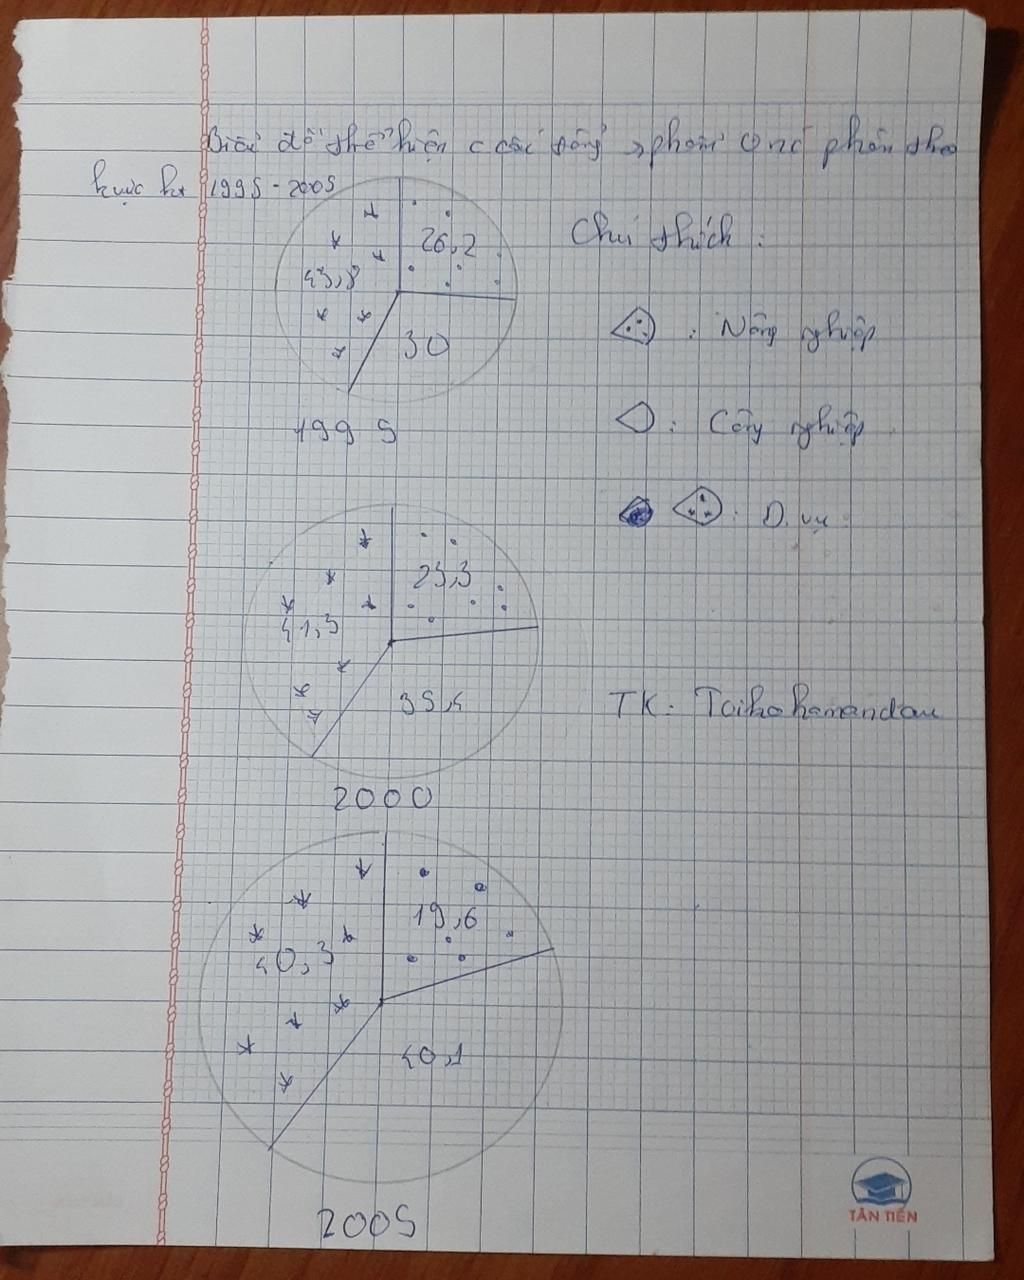 Biểu đồ thể hiện c cấu tổng sphẩm Q nć phân theo
kvực kt 1995 - 2005
26,2
43,8
30
1995
Chú thích :
: Nông nghiệp
: Công nghiệp
: D. vụ
23,3
41,3
35,4
2000
TK: Taihohamandau
19,6
40,3
40,1
2005
TÂN TIẾN